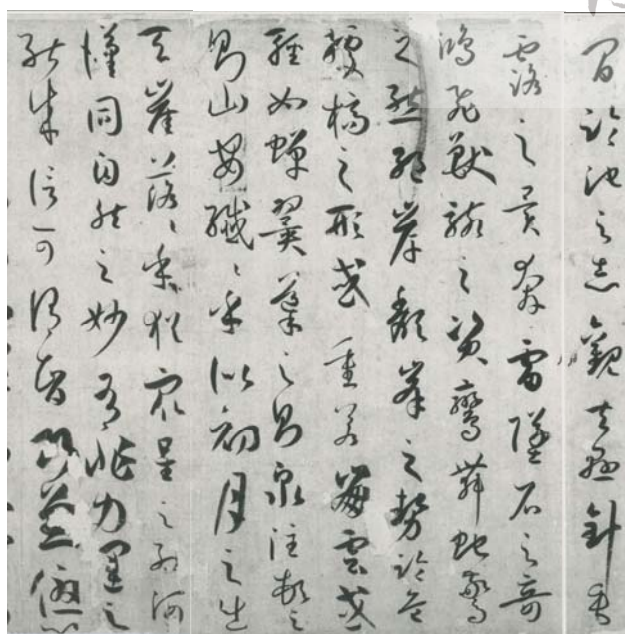 間臨池之志觀夫懸針垂
露之異奔雷墜石之奇
鴻飛獸駭之資鸞舞蛇驚
之態絕岸頹峯之勢臨危
據槁之形或重若崩雲或
輕如蟬翼導之則泉注頓之
則山安纖〻乎似初月之出
天崖落〻乎猶眾星之列河
漢同自然之妙有非力運之
能成信可謂智巧兼優心